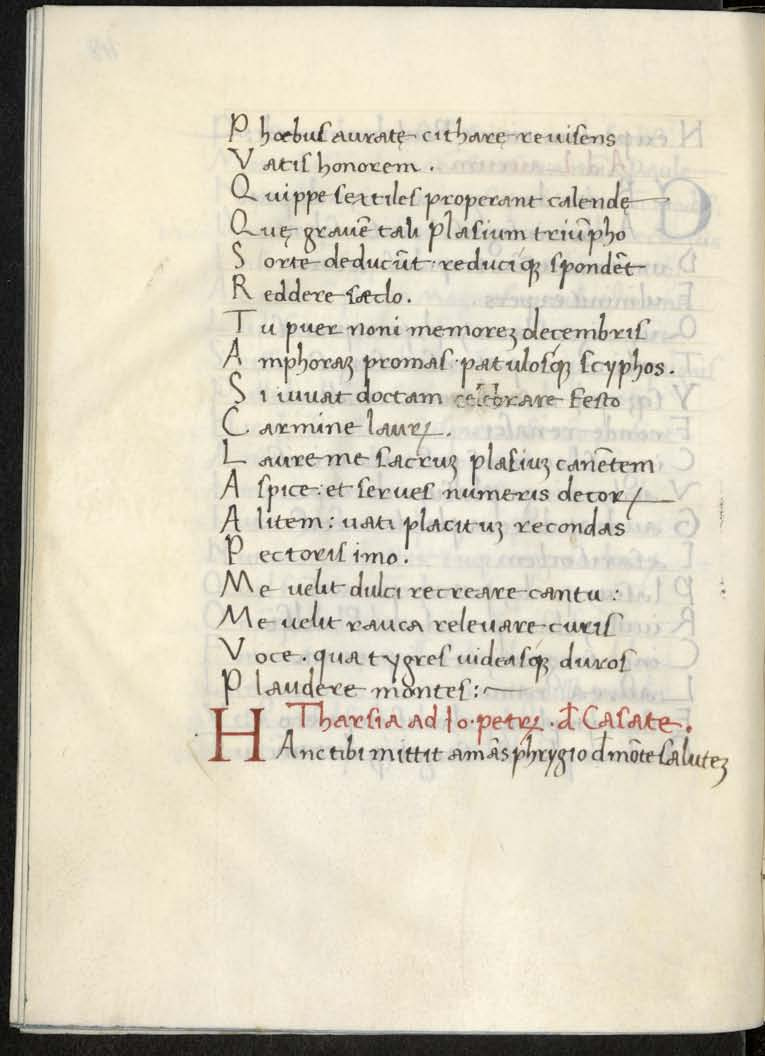 Phœbus auratę citharę reuisens
Vatis honorem .
Quippe sextiles properant calendę
Quę grauē tali plasium triūpho
Sorte deducūt : reduciq́ꝫ spondēt
Reddere sæclo .
Tu puer noni memoreꝫ decembris
Amphoraꝫ promas · patulosq́ꝫ scyphos .
Si iuuat doctam celebrare festo
Carmine laurꝝ .
Laure me sacruꝫ plasiuꝫ canētem
Aspice : et serues numeris decorꝝ
Alitem : uati placituꝫ recondas
Pectoris imo .
Me uelit dulci recreare cantu :
Me uelit rauca releuare curis
Voce . qua tygres uideasq́ꝫ duros
Plaudere montes :
Tharsia ad Io . petrꝝ . đ Casate .
HAnc tibi mittit amās phrygio đ mōte saluteꝫ